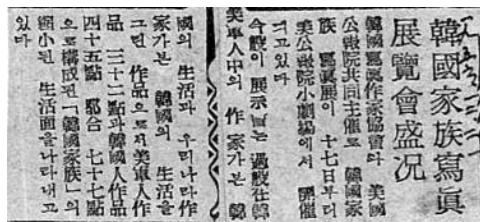 韓國家族寫眞
展覽會盛况
韓國寫眞作家協會와 美國
公報院共同主催로 韓國家
族 寫眞展이 十七日부터
美公報院小劇場에서 開催
되고있다
今般이 展示되는 過般在韓
美軍人中의 作家가본 韓
國의 生活과 우리나라作
家가본 韓國의 生活을
그린 作品으로서美軍人作
品 三十二點과韓國人作品
四十五點 都合 七十七點
으로構成된「韓國家族」의
縮小된 生活面을나타내고
있다